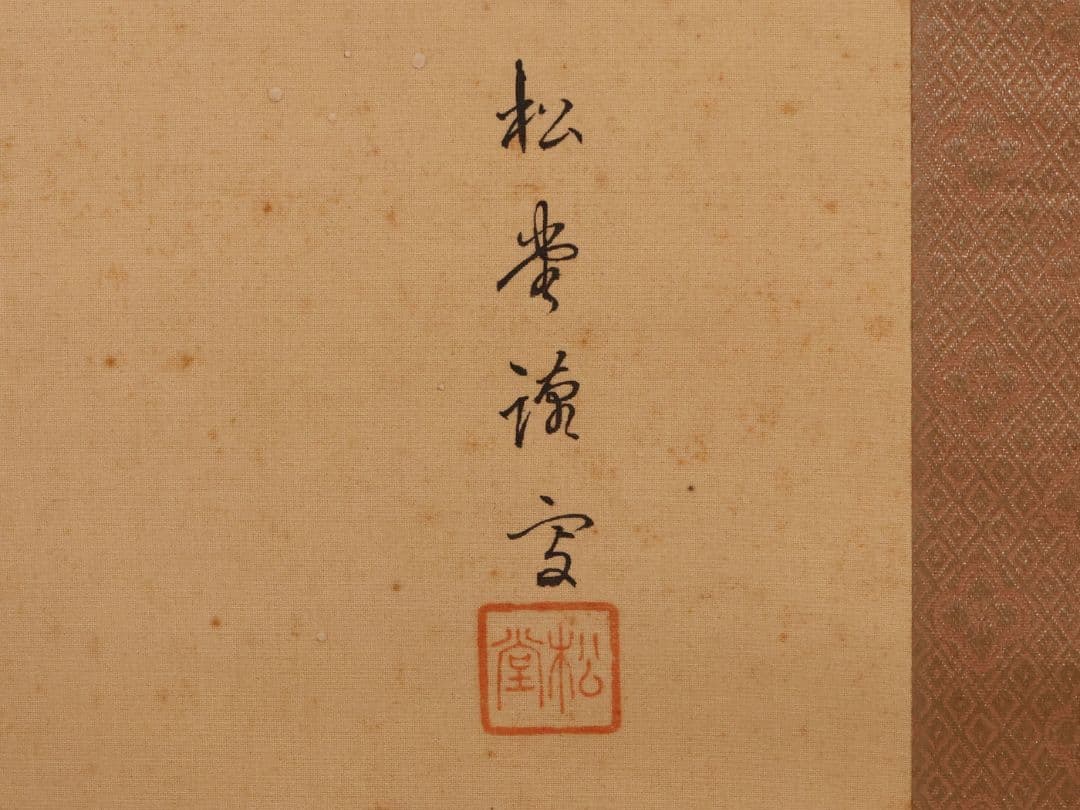 松堂謹写
松堂